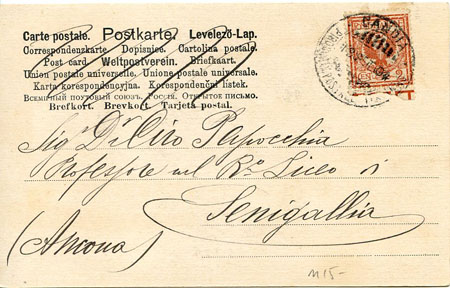 Carte postale. Postkarte. Levelező-Lap.
Correspondenzkarte Dopisnice. Cartolina postale.
Post card Weltpostverein. Briefkaart.
Union postale universelle. Unione postale universale.
Karta korrespondencyjna. Korespondenční lístek.
Всемірный почтовый союзъ. Россія. Открытое письмо.
Brefkort. Brevkort. Tarjeta postal.
CANDIA
Sigr Dr Ciro Papocchia
Professore nel Ro Liceo di
Senigallia
(Ancona)
M 15-